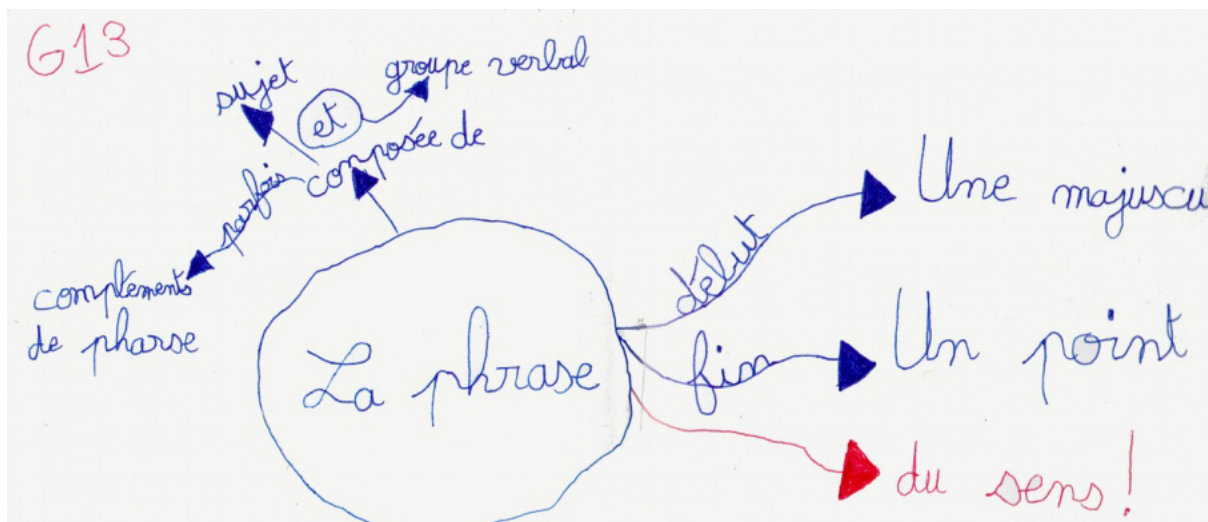 G13
sujet
et
groupe verbal
composée de
parfois
compléments
de pharse
La phrase
début
Une majuscu
fin
Un point
du sens !